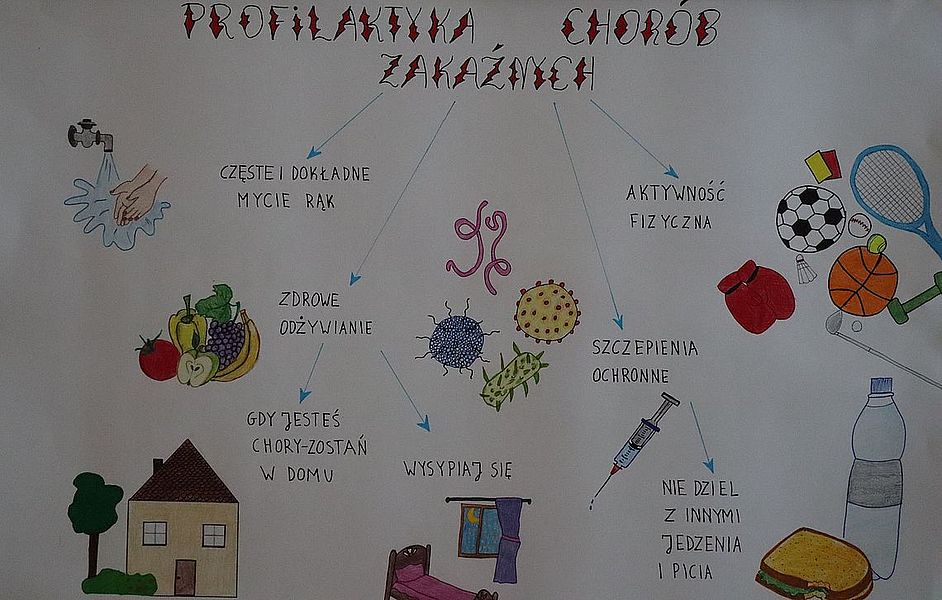 PROFILAKTYKA CHORÓB
ZAKAŹNYCH
CZĘSTE I DOKŁADNE
MYCIE RĄK
AKTYWNOŚĆ
FIZYCZNA
ZDROWE
ODŻYWIANIE
SZCZEPIENIA
OCHRONNE
GDY JESTEŚ
CHORY-ZOSTAŃ
W DOMU
WYSYPIAJ SIĘ
NIE DZIEL
Z INNYMI
JEDZENIA
I PICIA